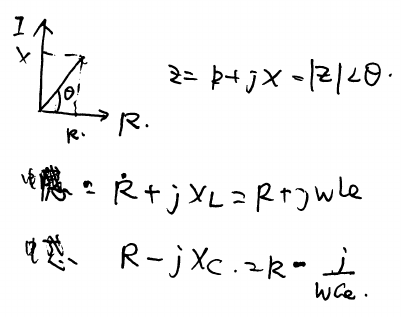 I
X
θ
R.
R.
Z = R + jX = |Z|∠θ.
電感 = R + jX_L = R + jwLe
R - jX_C. = R - j/wCe.